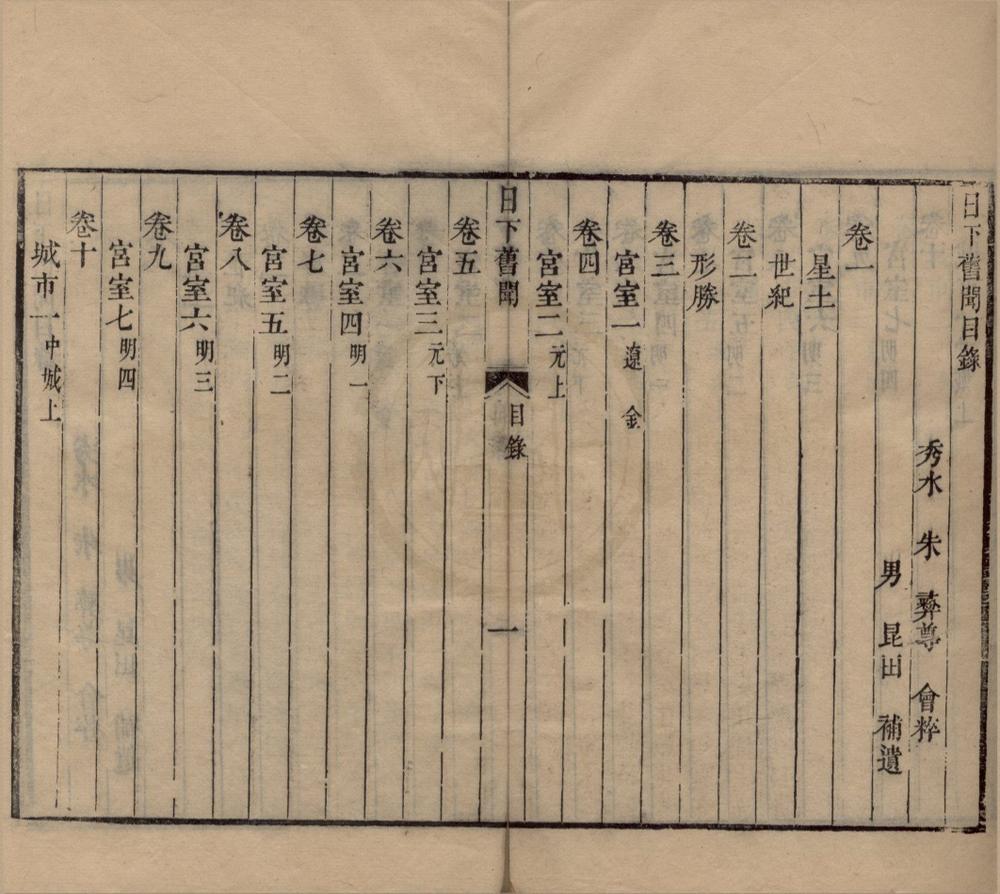 日下舊聞目錄
秀水 朱 彝尊 會粹
男 昆田 補遺
卷一
星土
世紀
卷二
形勝
卷三
宮室一 遼 金
卷四
宮室二 元上
日下舊聞 目錄 一
卷五
宮室三 元下
卷六
宮室四 明一
卷七
宮室五 明二
卷八
宮室六 明三
卷九
宮室七 明四
卷十
城市一 中城上